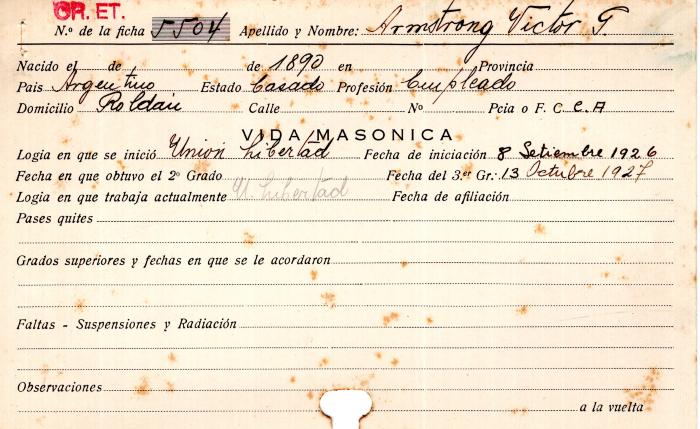 OR. ET.
N.º de la ficha 5504 Apellido y Nombre: Armstrong Victor G.
Nacido el de de 1890 en Provincia
Pais Argentino Estado Casado Profesión Empleado
Domicilio Roldán Calle Nº Pcia o F. C. C. A
VIDA MASONICA
Logia en que se inició Unión Libertad Fecha de iniciación 8 Setiembre 1926
Fecha en que obtuvo el 2º Grado Fecha del 3.er Gr.: 13 Octubre 1927
Logia en que trabaja actualmente U. Libertad Fecha de afiliación
Pases quites
Grados superiores y fechas en que se le acordaron
Faltas - Suspensiones y Radiación
Observaciones
a la vuelta